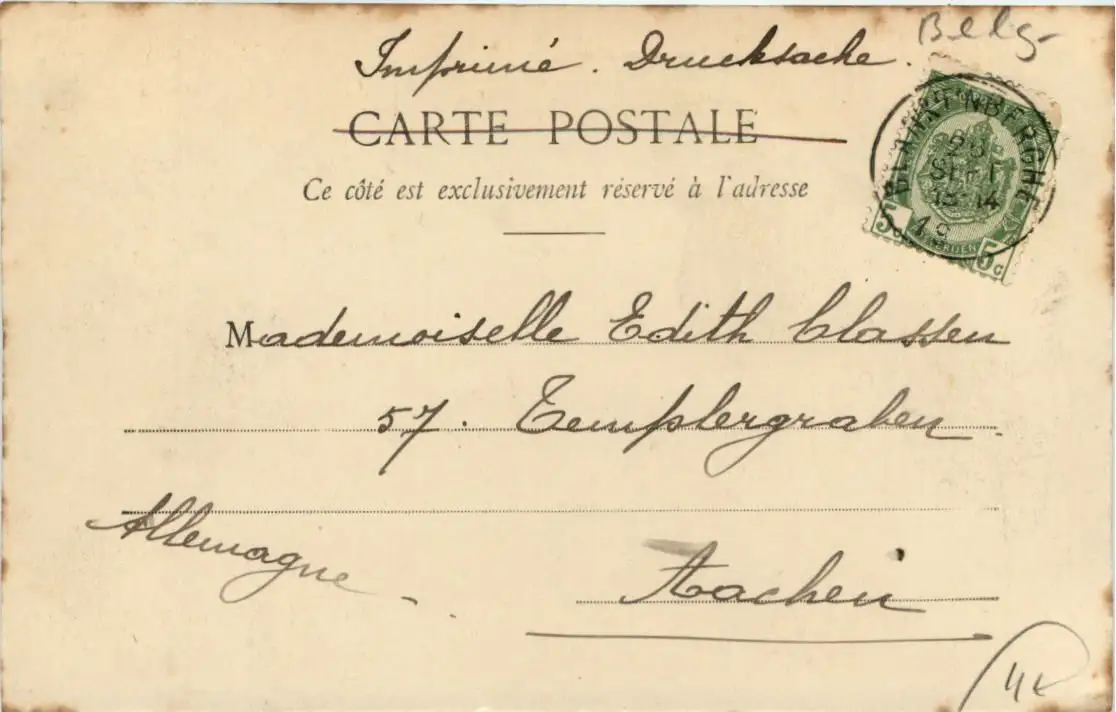 Belg-
Imprimé. Drucksache.
CARTE POSTALE
Ce côté est exclusivement réservé à l'adresse
BLANKENBERGHE
SEPT
13-14
5c 5c
Mademoiselle Edith Classen
57. Templergraben.
Allemagne.
Aachen